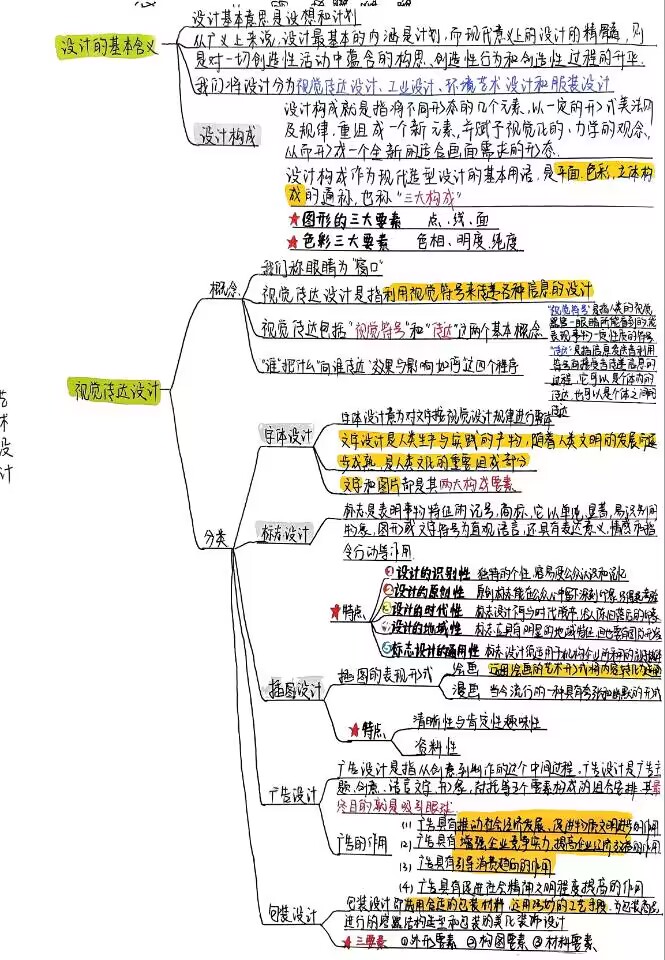 设计的基本含义
设计基本意思是设想和计划
从广义上来说,设计最基本的内涵是计划,而现代意义上的设计的精髓,则
是对一切创造性活动中蕴含的构思、创造性行为和创造性过程的升华.
我们将设计分为视觉传达设计、工业设计、环境艺术设计和服装设计
设计构成
设计构成就是指将不同形态的几个元素,以一定的形式美法则
及规律,重组成一个新元素,并赋予视觉化的、力学的观念,
从而形成一个全新的适合画面需求的形态.
设计构成作为现代造型设计的基本用语,是平面、色彩、立体构
成的通称,也称"三大构成"
★图形的三大要素 点、线、面
★色彩三大要素 色相、明度、纯度
视觉传达设计
概念
我们称眼睛为"窗口"
视觉传达设计是指利用视觉符号来传递各种信息的设计
视觉传达包括"视觉符号"和"传达"这两个基本概念
"视觉符号"是指人类的视觉
器官-眼睛所能看到的能
表现事物一定性质的符号
"传达"是指信息发送者利用
符号向接受者传递信息的
过程,它可以是个体内的
传达,也可以是个体之间的
传达
"谁"把什么"向谁传达"效果与影响如何这四个程序
艺
术
设
计
分类
字体设计
字体设计意为对文字按视觉设计规律进行整体
文字设计是人类生产与实践的产物,随着人类文明的发展而逐
步成熟,是人类文化的重要组成部分
文字和图片都是其两大构成要素
标志设计
标志是表明事物特征的记号,商标,它以单纯、显著、易识别的
物象、图形或文字符号为直观语言,还具有表达意义、情感和指
令行动等作用
★特点
①设计的识别性 独特的个性,容易使公众认识和记忆
②设计的原创性
③设计的时代性
④设计的地域性
⑤标志设计的通用性
插图设计
插图的表现形式
绘画 运用绘画的艺术形式将内容转化为
漫画 当今流行的一种具有夸张和幽默的形式
★特点
清晰性与肯定性趣味性
资料性
广告设计
广告设计是指从创意到制作的这个中间过程,广告设计是广告主
题、创意、语言文字、形象、衬托等五个要素构成的组合安排,其最
终目的就是吸引眼球
广告的作用
(1) 广告具有推动社会经济发展、促进物质文明进步的作用
(2) 广告具有增强企业竞争实力,提高企业经济效益的作用
(3) 广告具有引导消费趋向的作用
(4) 广告具有促进社会精神文明程度提高的作用
包装设计
包装设计即选用合适的包装材料,运用巧妙的工艺手段,为包装商品
进行的容器结构造型和包装的美化装饰设计
★三要素 ①外形要素 ②构图要素 ③材料要素